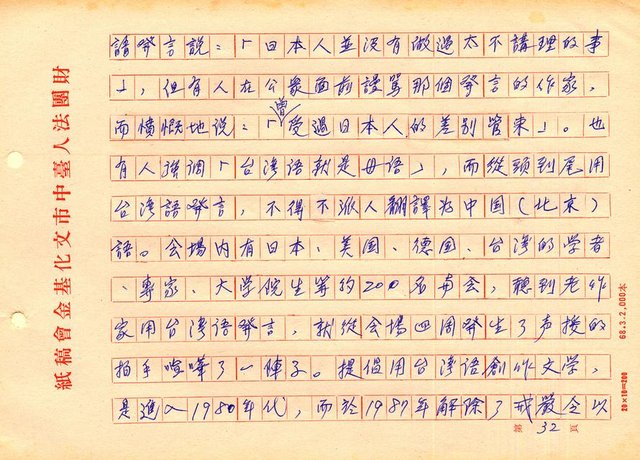 語發言説：「日本人並没有做過太不講理的事
」，但有人在公衆面前謾罵那個發言的作家，
而憤慨地说：「曾受過日本人的差别管束」。也
有人強調「台湾语就是母语」，而從頭到尾用
台湾語發言，不得不派人翻譯为中国（北京）
語。会場内有日本、美国、德国、台灣的学者
、專家、大学院生等约200名与会，聽到老作
家用台湾语發言，就從会場四周發生了声援的
拍手喧嘩了一陣子。提倡用台湾语創作文学，
是進入1980年代，而於1987年解除了戒嚴令以
財團法人臺中市文化基金會稿紙
68.3.2,000本
20×10=200
第 32 頁